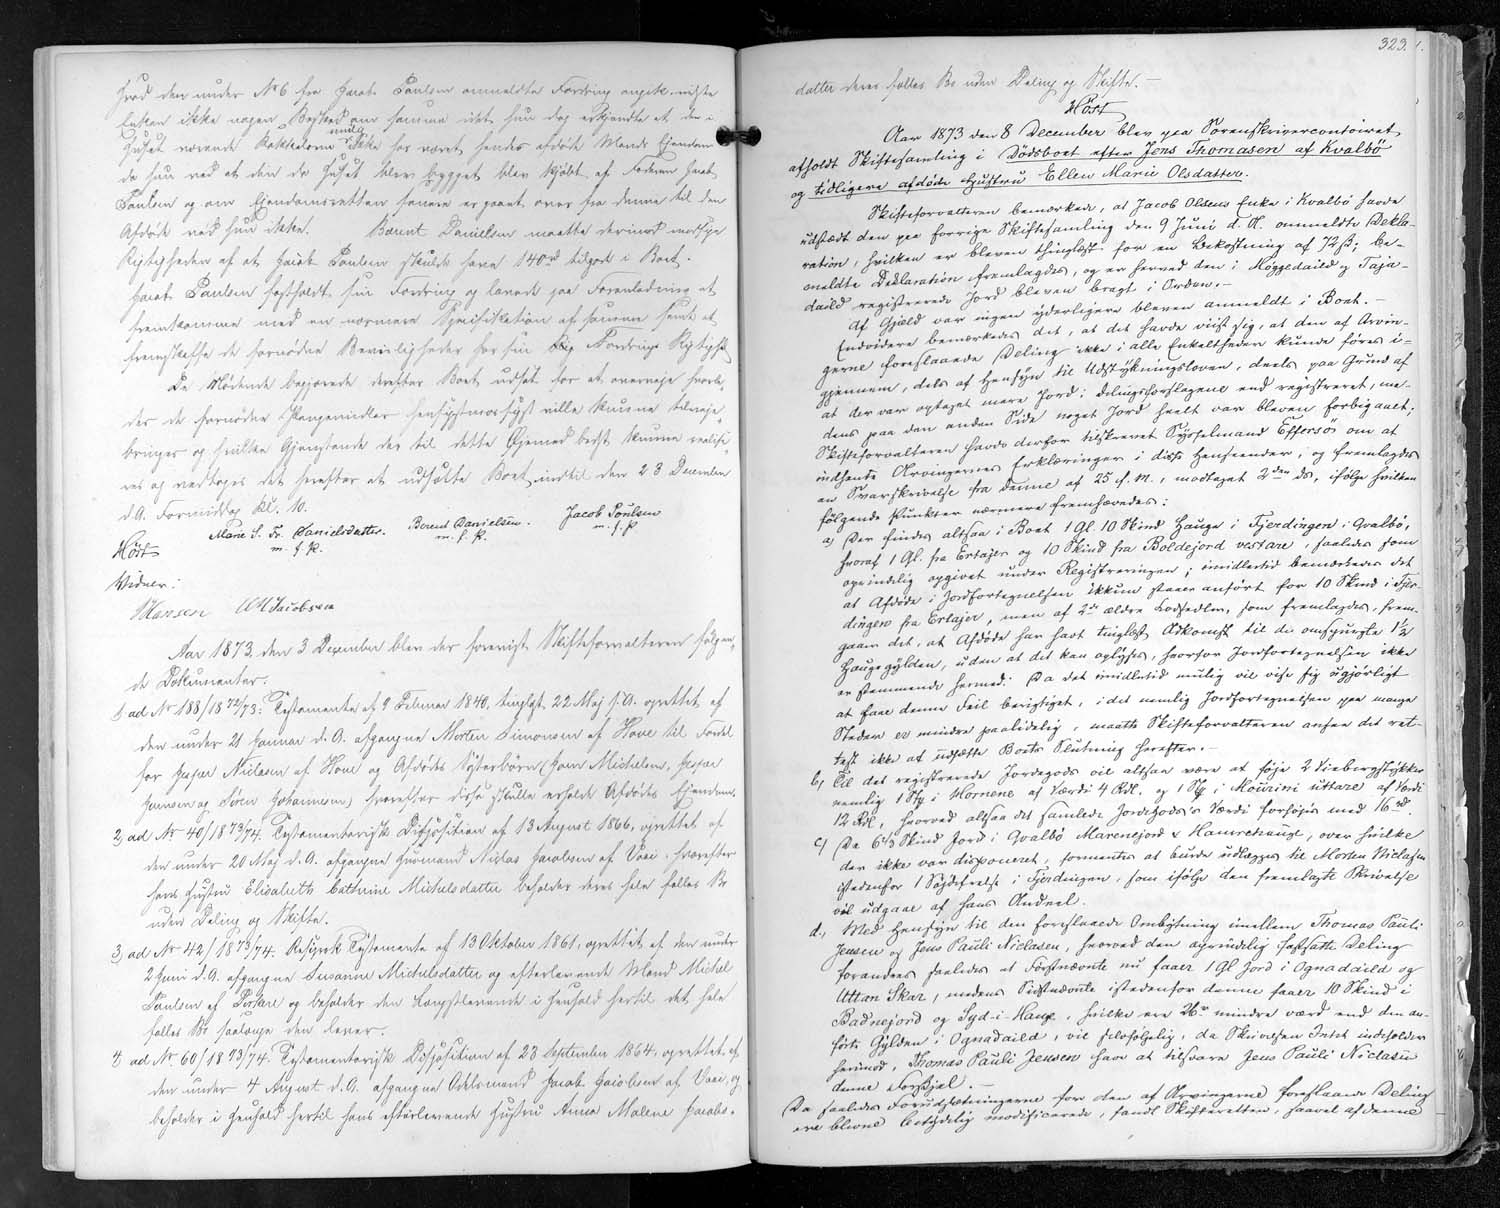 Hvad den under No 6 fra Jacob Poulsen anmeldte Fordring angik vidste
Enken ikke nogen Besked om samme idet hun dog erkjendte at de i
Huset værende Kakkelovne nemlig ikke har været hendes afdøde Mands Eiendom
da hun ved at den da Huset blev bygget blev kjøbt af Faderen Jacob
Poulsen og om Eiendomsretten senere er gaaet over fra denne til den
Afdøde ved hun ikke. Berent Danielsen maatte derimod modsige
Rigtigheden af at Jacob Poulsen skulde have 140 rd tilgode i Boet.
Jacob Poulsen fastholdt sin Fordring og lovede paa Foranledning at
fremkomme med en nærmere Specifikation af samme samt at
fremskaffe de fornødne Beviisligheder for sin Fordrings Rigtighed
De Mødende begjærede derefter Boet udsat for at overveie hvorle-
des de fornødne Pengemidler hensigtsmæssigst ville kunne tilveie-
bringes og hvilke Gjenstande der til dette Øiemed bedst kunne realise-
res og vedtoges det herefter at udsætte Boet indtil den 23 December
d.A. Formiddag Kl. 10.
Marie S. Fr. Danielsdatter. Berent Danielsen. Jacob Poulsen
m. f. P. m. f. P. m. f. P
Høst
Vidner:
Hansen WH Jacobsen
Aar 1873 den 3 December blev der foreviist Skifteforvalteren følgen-
de Dokumenter.
1, ad No 188/1872/73: Testamente af 9 Februar 1840, tinglyst 22 Maj s.A. oprettet af
den under 21 Januar d.A. afgangne Morten Simonsen af Hove til Fordel
for Jesper Niclasen af Hove og Afdødes Søsterbørn (Joen Michelsen, Jesper
Hansen og Søren Johannesen) hvorefter disse skulle erholde Afdødes Eiendom.
2, ad No 40/1873/74. Testamentarisk Disposition af 13 August 1866, oprettet af
den under 20 Maj d.A. afgangne Huusmand Niclas Jacobsen af Vaei hvorefter
hans Hustru Elisabeth Cathrine Michelsdatter beholder deres hele fælles Bo
uden Deling og Skifte.
3, ad No 42/1873/74. Reciprok Testamente af 13 Oktober 1861, oprettet af den under
2 Juni d.A. afgangne Susanne Michelsdatter og efterlevende Mand Michel
Poulsen af Porkere og beholder den Længstlevende i Henhold hertil det hele
fælles Bo saalænge den lever.
4, ad No 60/1873/74. Testamentarisk Disposition af 23 September 1864, oprettet af
den under 4 August d.A. afgangne Odelsmand Jacob Jacobsen af Vaei, og
beholder i Henhold hertil hans efterlevende Hustru Anna Malene Jacobs-
323.
datter deres fælles Bo uden Deling og Skifte. —
Høst
Aar 1873 den 8 December blev paa Sorenskrivercontoiret
afholdt Skiftesamling i Dødsboet efter Jens Thomasen af Kvalbø
og tidligere afdøde Hustru Ellen Marie Olsdatter.
Skifteforvalteren bemærkede, at Jacob Olsens Enke i Kvalbø havde
udstædt den paa forrige Skiftesamling den 9 Juni d. A. ommeldte Dekla-
ration, hvilken er bleven thinglæst for en Bekostning af 72 ß; be-
meldte Deklaration fremlagdes, og er herved den i Høggedaild og Taja-
daild registrerede Jord bleven bragt i Orden. —
Af Gjæld var ingen yderligere bleven anmeldt i Boet. —
Endvidere bemærkedes det, at det havde viist sig, at den af Arvin-
gerne foreslaaede Deling ikke i alle Enkeltheder kunde føres i-
gjennem, dels af Hensyn til Udstykningsloven, deels paa Grund af
at der var optaget mere Jord i delingsforslagene end registreret, me-
dens paa den anden Side noget Jord heelt var bleven forbigaaet;
Skifteforvalteren havde derfor tilskrevet Sysselmand Effersøe om at
indhente Arvingernes Erklæringer i disse Henseender, og fremlagdes
en Svarskrivelse fra denne af 25 f. M., modtaget 2den ds, ifølge hvilken
følgende Punkter nærmere fremhævedes:
a, Der findes altsaa i Boet 1 Gl. 10 Skind Hauge i Fjerdingen i Qvalbø,
hvoraf 1 Gl. fra Ertajer og 10 Skind fra Boldejord vestare, saaledes som
oprindelig opgivet under Registreringen; imidlertid bemærkedes det
at Afdøde i Jordfortegnelsen ikkun staaer anført for 10 Skind i Fjer-
dingen fra Ertajer, men af 2de ældre Lodsedler, som fremlagdes, frem-
gaaer det, at Afdøde har havt tinglæst Adkomst til de omspurgte 1½
Haugegylden, uden at det kan oplyses, hvorfor Jordfortegnelsen ikke
er stemmende hermed. Da det imidlertid mulig vil vise sig ugjørligt
at faae denne Feil berigtiget, idet nemlig Jordfortegnelsen paa mange
Steder er mindre paalidelig, maatte Skifteforvalteren ansee det ret-
test ikke at udsætte Boets Slutning herefter. —
b, Til det registrerede Jordegods vil altsaa være at føje 2 Viebergstykker
nemlig 1 Stk i Hornene af Værdi 4 Rdl. og 1 Stk i Mourini uttare af Værdi
12 Rdl, hvorved altsaa det samlede Jordegods's Værdi forhøjes med 16 rd.
c, De 6 4/3 Skind Jord i Qvalbø Marenejord & Hamrehauge, over hvilke
der ikke var disponeret, formentes at burde udlægges til Morten Niclasen
istedenfor 1 Søjdefredse i Fjerdingen, som ifølge den fremlagte Skrivelse
vil udgaae af hans Andeel.
d., Med Hensyn til den foreslaaede Ombytning imellem Thomas Pauli
Jensen og Jens Pauli Niclasen, hvorved den oprindelig fastsatte Deling
forandres saaledes at Førstnævnte nu faaer 1 Gl Jord i Ognadaild og
Uttan Skar, medens Sidstnævnte istedenfor denne faaer 10 Skind i
Badnejord og Syd-i-Hauge, hvilke ere 26 rd mindre værd end den an-
førte Gylden i Ognadaild, vil selvfølgelig, da Skrivelsen Intet indeholder
herimod, Thomas Pauli Jensen have at tilsvare Jens Pauli Niclasen
denne Forskjel. —
Da saaledes Forudsætningerne for den af Arvingerne foreslaaede Deling
ere blevne betydelig modificerede, fandt Skifteretten, saavel af denne